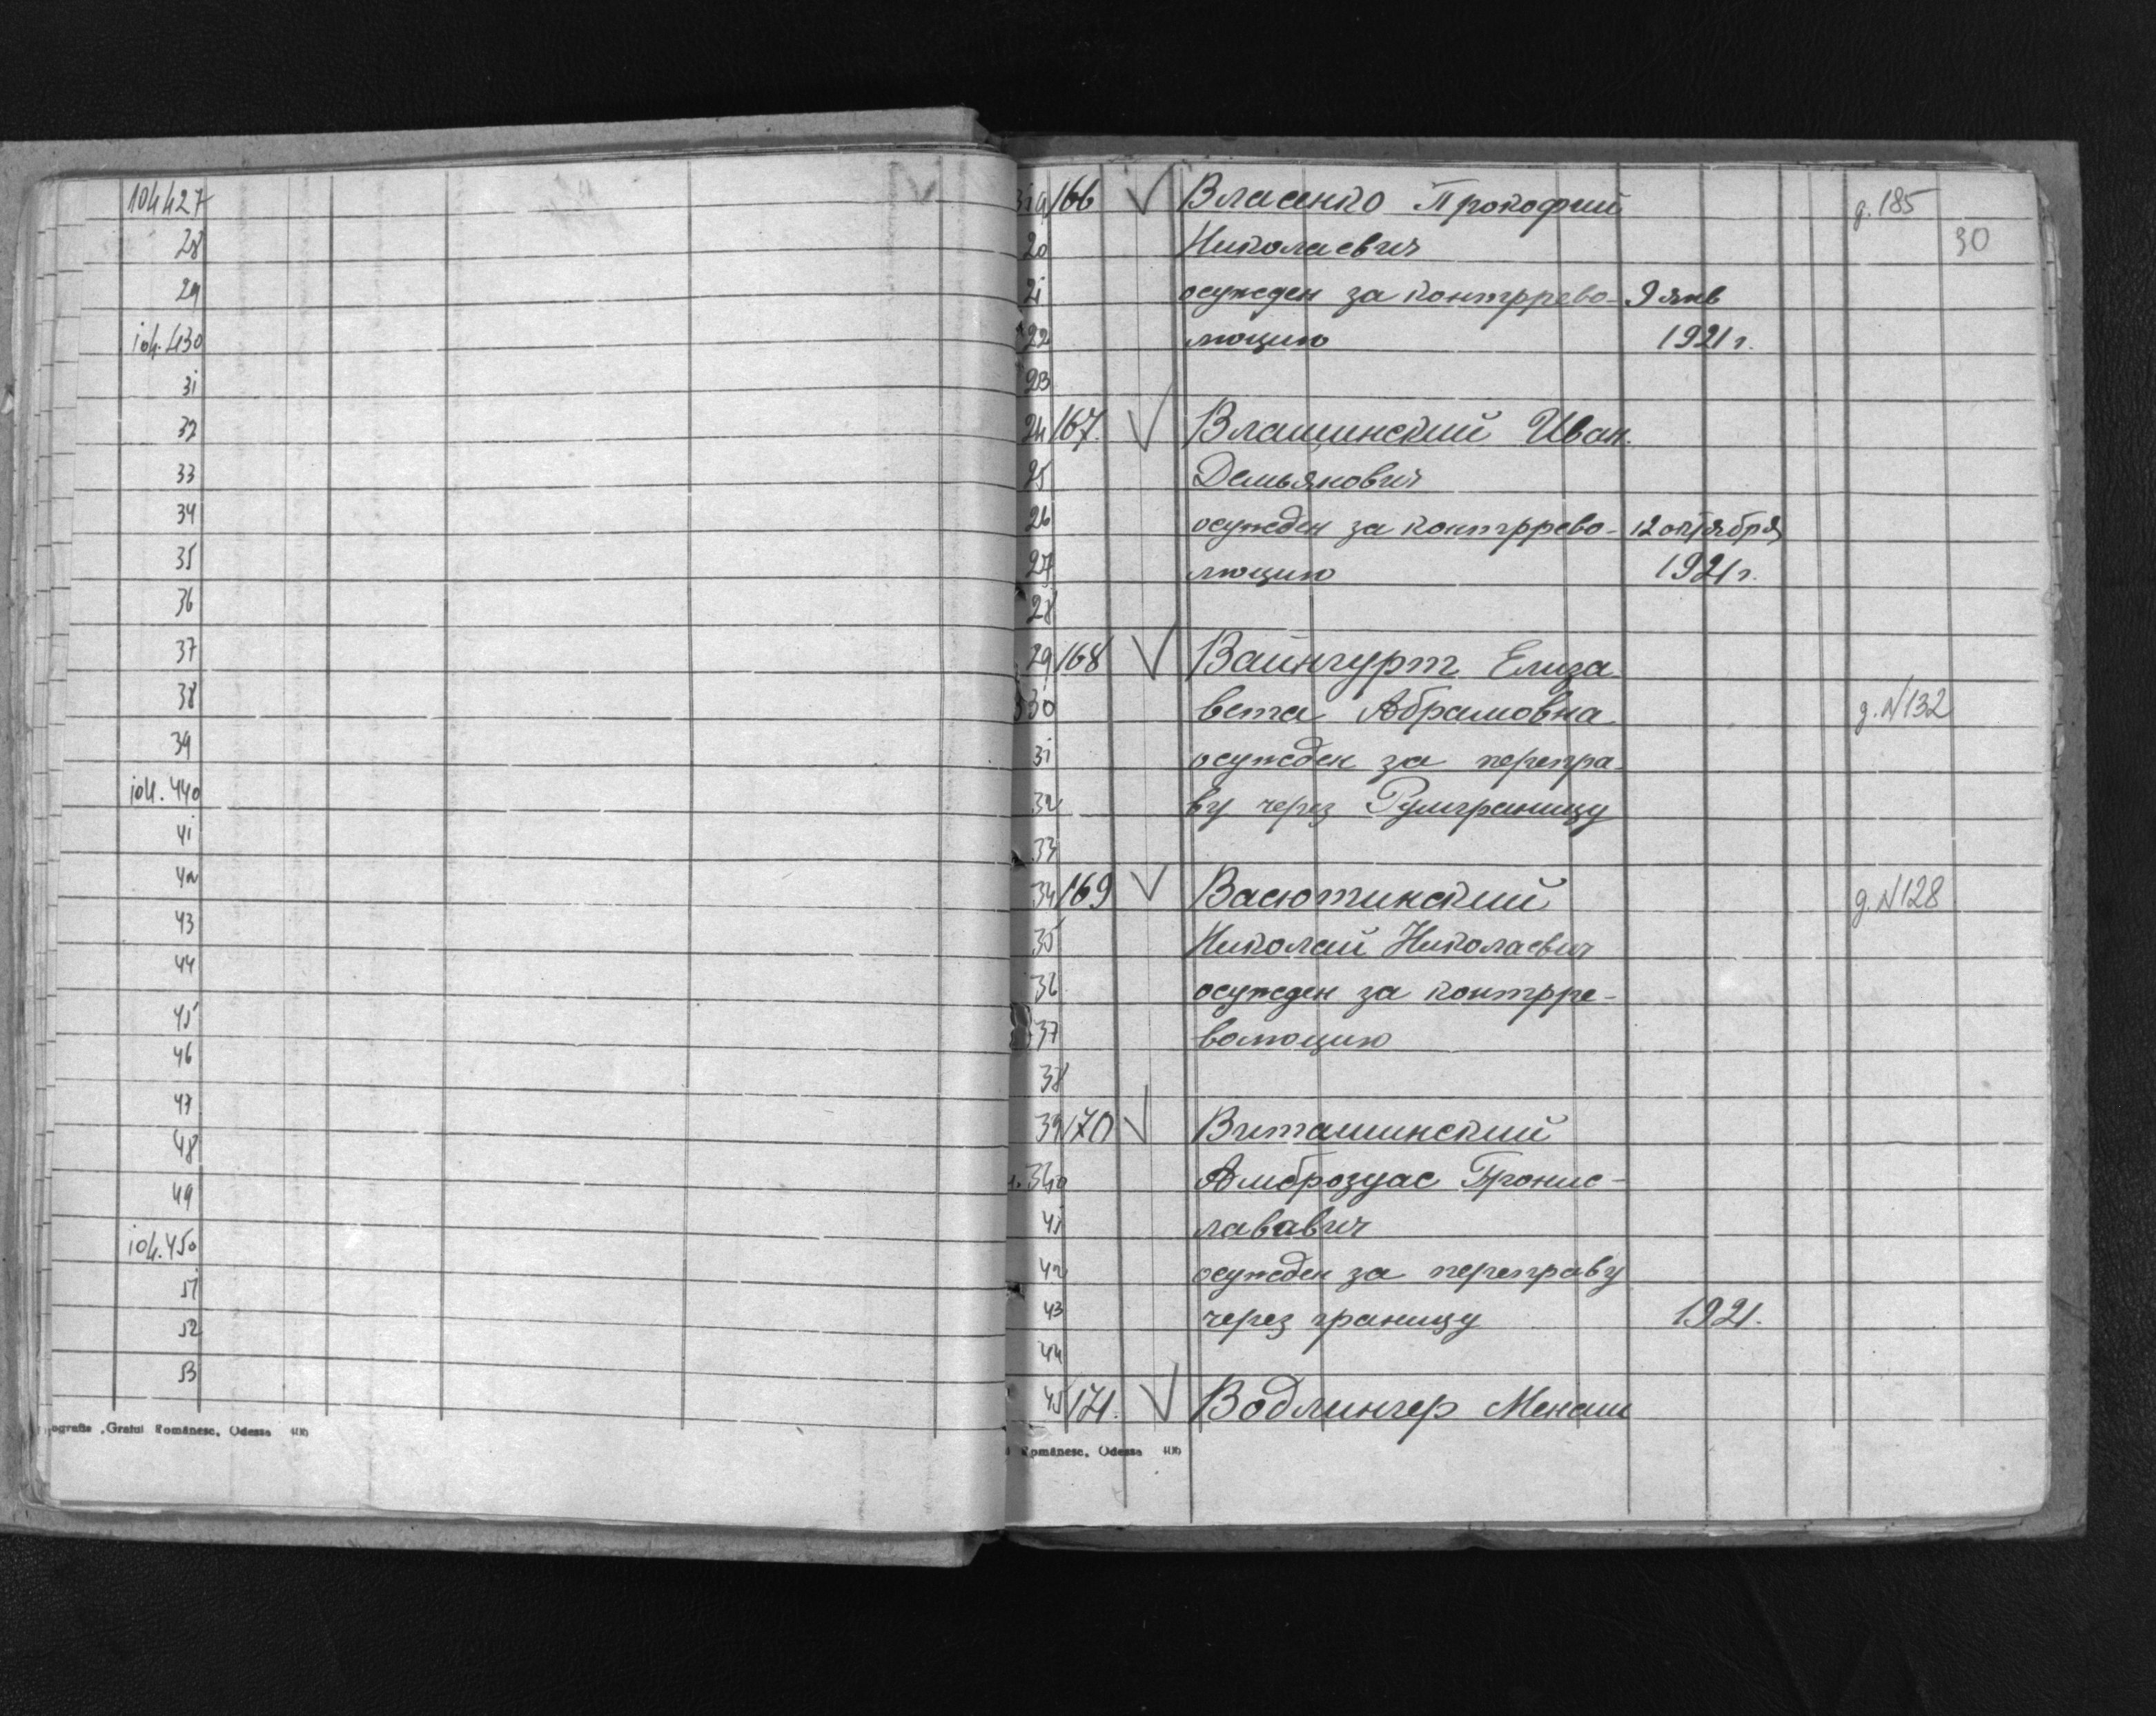 104427
28
29
104.430
31
32
33
34
35
36
37
38
39
104.440
41
42
43
44
45
46
47
48
49
104.450
51
52
53
ografia „Graiul Românesc„ Odessa
319 166 √ Власенко Прокофий д.185
20 Николаевич 30
21 осужден за контррево- 9 янв
22 люцию 1921 г.
23
24 167. √ Влащинский Иван.
25 Демьянович
26 осужден за контррево- 12 октября
27 люцию 1921 г.
28
29 168 √ Вайнгурт Елиза
30 вета Абрамовна д.N132
31 осужден за перепра-
32 ву через Румграницу
33
34 169 √ Васютинский д.N128
35 Николай Николаевич
36 осужден за контрре-
37 волюцию
38
39 170 √ Виташинский
340 Амброзуас Пронис-
41 лававич
42 осужден за переправу
43 через границу 1921.
44
45 171. √ Водлингер Менаш
Românesc, Odessa